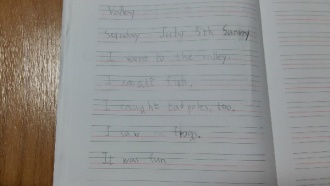 Valley
Sunday July 5th Sunny
I went to the valley.
I caught fish.
I caught tadpoles, too.
I saw frogs.
It was fun.